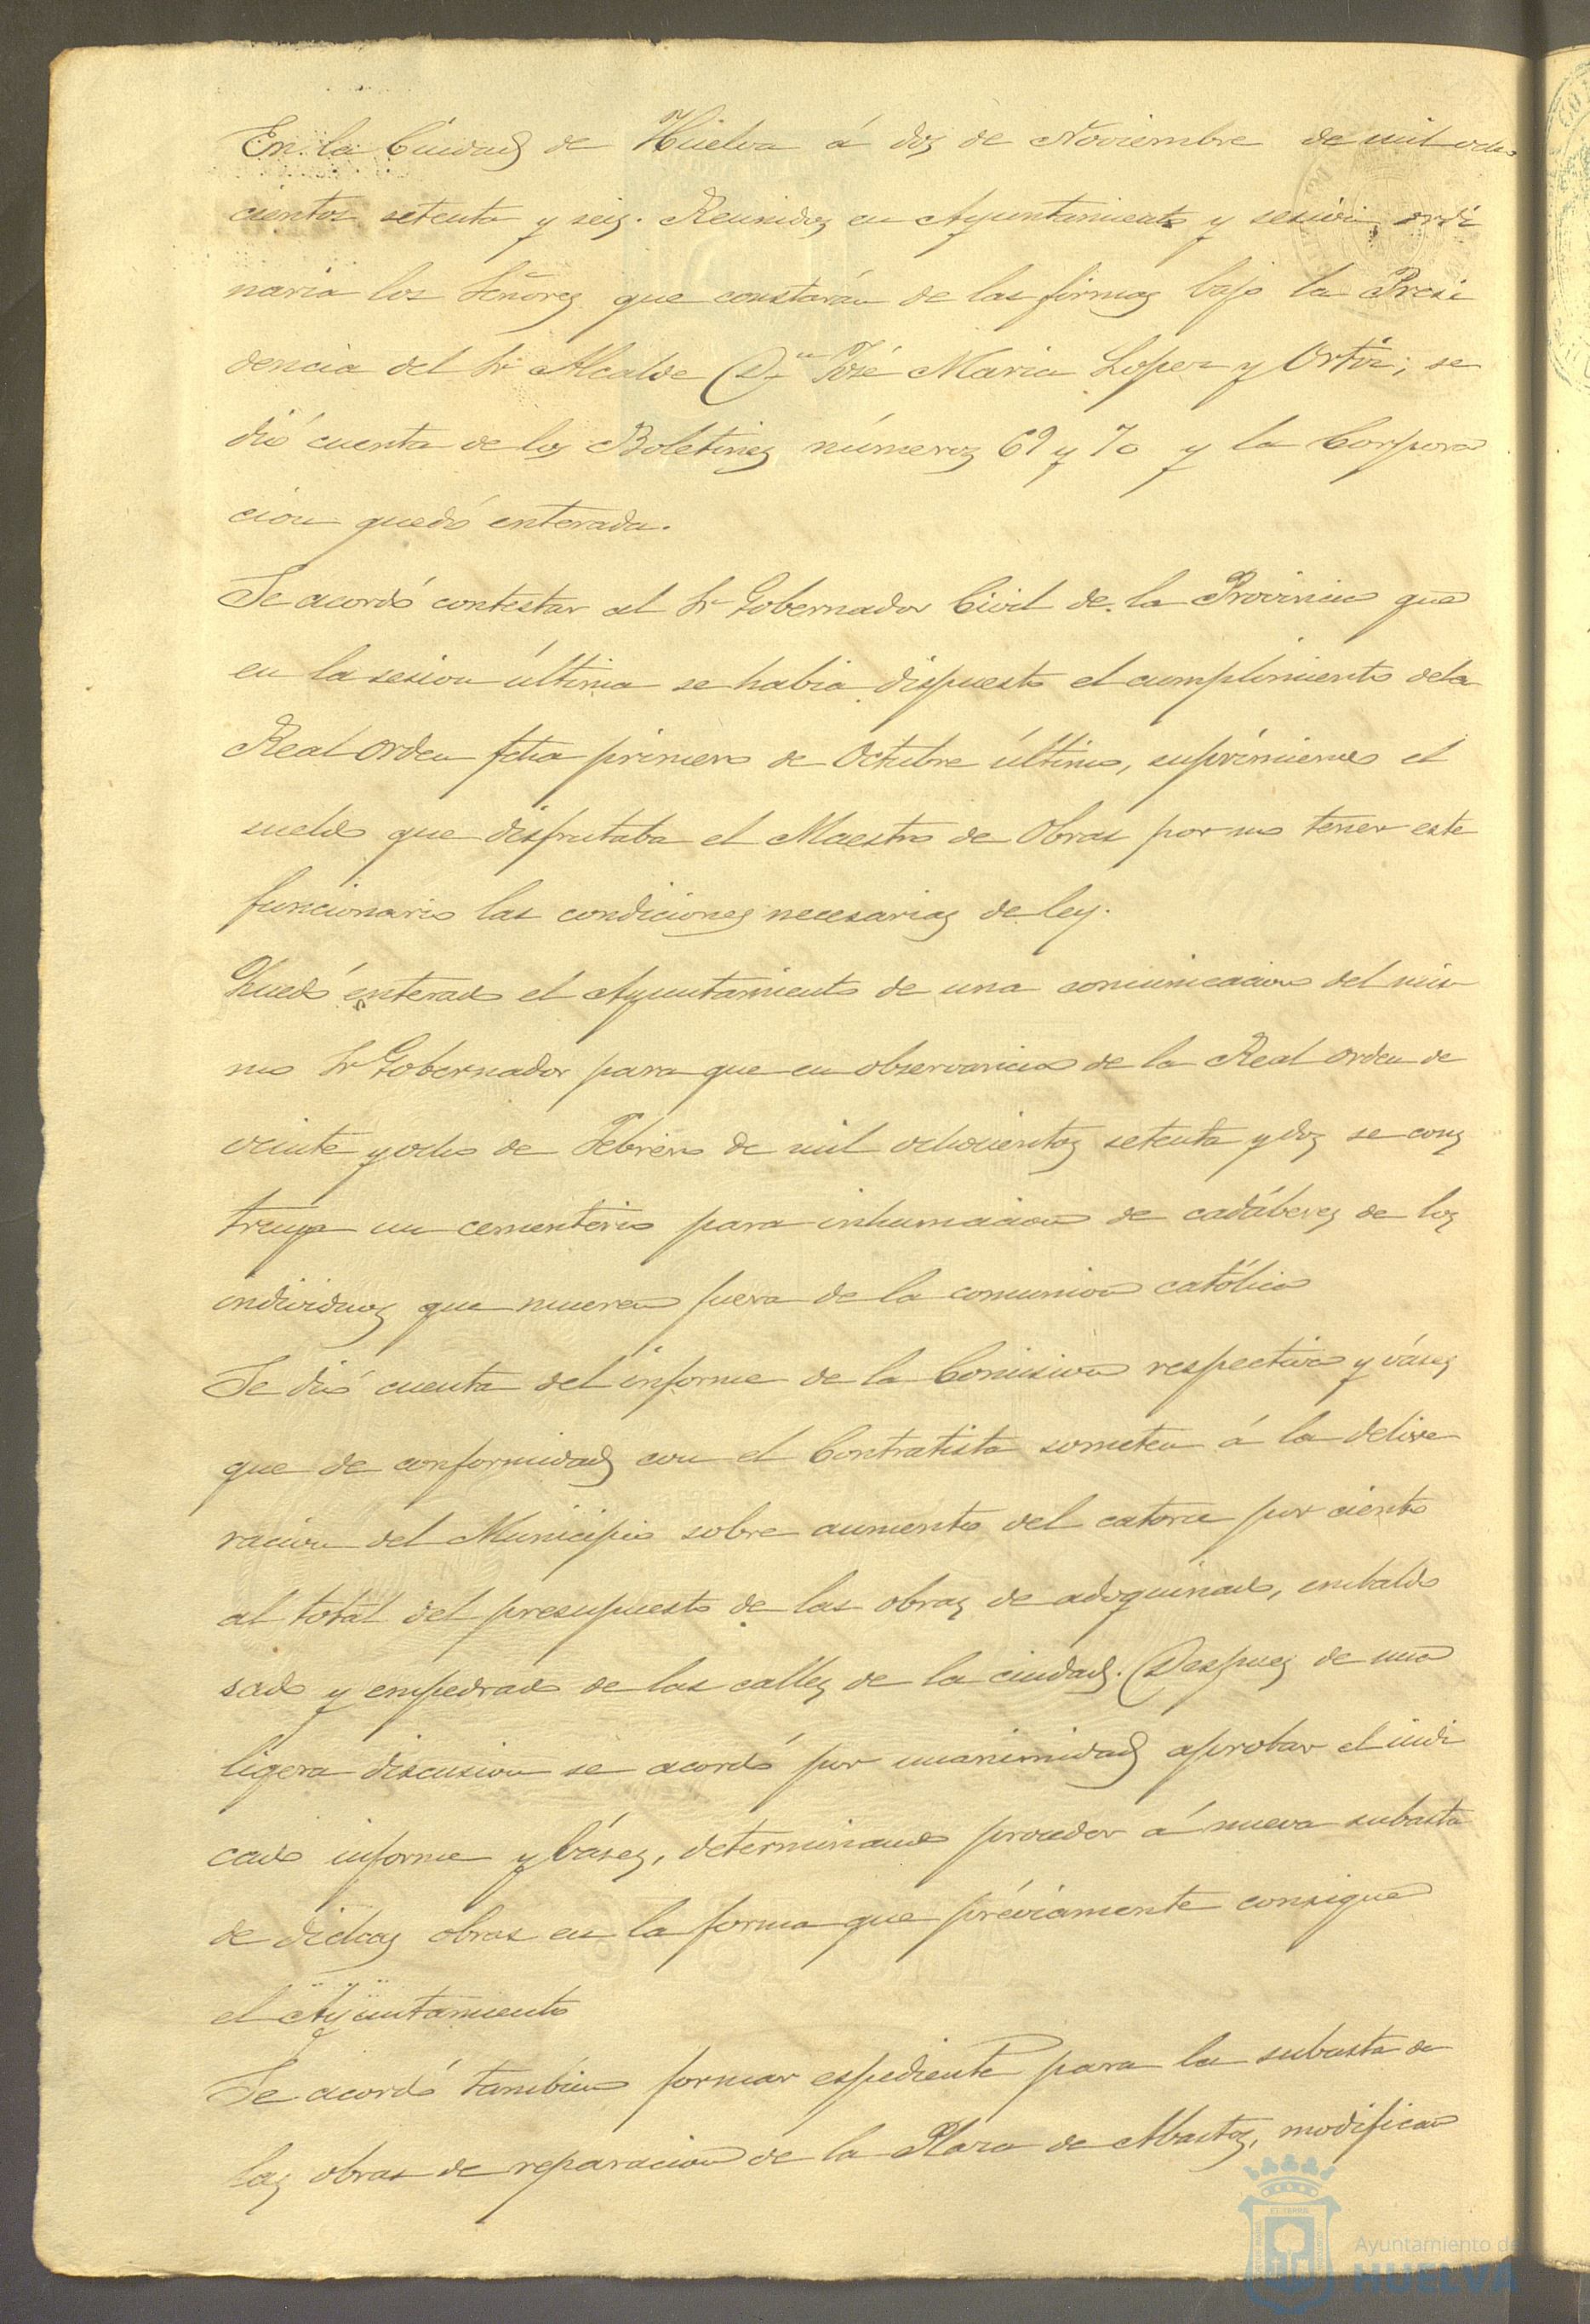 En la Ciudad de Huelva á dos de Noviembre de mil ocho
cientos setenta y seis. Reunidos en Ayuntamiento y sesion ordi
naria los Señores que constarán de las firmas bajo la Presi
dencia del Sr Alcalde Dn José Maria Lopez y Ortiz; se
dió cuenta de los Boletines números 69 y 70 y la Corpora
cion quedó enterada.
Se acordó contestar al Sr Gobernador Civil de la Provincia que
en la sesion última se habia dispuesto el cumplimiento dela
Real orden fcha primero de Octubre último, suprimiendo el
sueldo que disfrutaba el Maestro de Obras por no tener este
funcionario las condiciones necesarias de ley.
Quedó enterado el Ayuntamiento de una comunicacion del mis
mo Sr Gobernador para que en observancia de la Real orden de
veinte y ocho de Febrero de mil ochocientos setenta y dos se cons
truya un cementerio para inhumacion de cadáberes de los
individuos que mueran fuera de la comunion católica
Se dió cuenta del informe de la Comision respectiva y báses
que de conformidad con el Contratista someten á la delive
racion del Municipio sobre aumento del catorce por ciento
al total del presupuesto de las obras de adoquinado, embaldo
sado y empedrado de las calles de la ciudad. Despues de una
ligera discusion se acordó por unanimidad aprobar el indi
cado informe y báses, determinando proceder á nueva subasta
de dichas obras en la forma que préviamente consigne
el Ayuntamiento
Se acordó tambien formar espediente para la subasta de
las obras de reparacion de la Plaza de Abastos, modifican
Ayuntamiento de
HUELVA